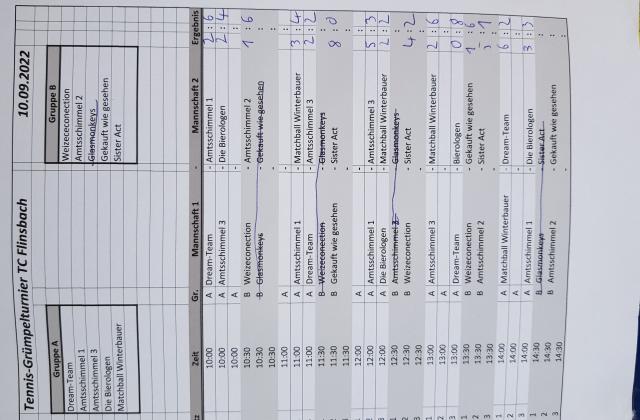 Tennis-Grümpelturnier TC Flinsbach 10.09.2022
Gruppe A Gruppe B
Dream-Team Weizeconection
Amtsschimmel 1 Amtsschimmel 2
Amtsschimmel 3 Glasmonkeys
Die Bierologen Gekauft wie gesehen
Matchball Winterbauer Sister Act
Zeit Gr. Mannschaft 1 - Mannschaft 2 Ergebnis
10:00 A Dream-Team - Amtsschimmel 1 2 : 6
10:00 A Amtsschimmel 3 - Die Bierologen 2 : 4
10:00 A
10:30 B Weizeconection - Amtsschimmel 2 1 : 6
10:30 B Glasmonkeys - Gekauft wie gesehen :
10:30 :
11:00 A :
11:00 A Amtsschimmel 1 - Matchball Winterbauer 3 : 4
11:00 A Dream-Team - Amtsschimmel 3 2 : 2
11:30 B Weizeconection - Glasmonkeys :
11:30 B Gekauft wie gesehen - Sister Act 8 : 0
11:30 :
12:00 A :
12:00 A Amtsschimmel 1 - Amtsschimmel 3 5 : 3
12:00 A Die Bierologen - Matchball Winterbauer 2 : 2
12:30 B Amtsschimmel 2 - Glasmonkeys :
12:30 B Weizeconection - Sister Act 4 : 2
12:30 :
1 13:00 A Amtsschimmel 3 - Matchball Winterbauer 2 : 6
2 13:00 A :
3 13:00 A Dream-Team - Bierologen 0 : 8
1 13:30 B Weizeconection - Gekauft wie gesehen 1 : 6
2 13:30 B Amtsschimmel 2 - Sister Act : 1
3 13:30 :
1 14:00 A Matchball Winterbauer - Dream-Team 6 : 2
2 14:00 A :
3 14:00 A Amtsschimmel 1 - Die Bierologen 3 : 3
1 14:30 B Glasmonkeys - Sister Act :
2 14:30 B Amtsschimmel 2 - Gekauft wie gesehen :
3 14:30 :